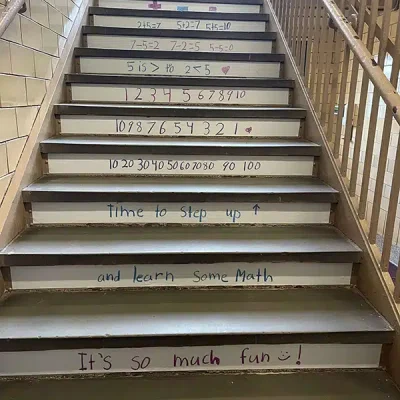 2+5=7 5+2=7 5+5=10
7-5=2 7-2=5 5-5=0
5 is > to 2 < 5
1 2 3 4 5 6 7 8 9 10
10 9 8 7 6 5 4 3 2 1
10 20 30 40 50 60 70 80 90 100
Time to step up ↑
and learn some Math
It's so much fun !